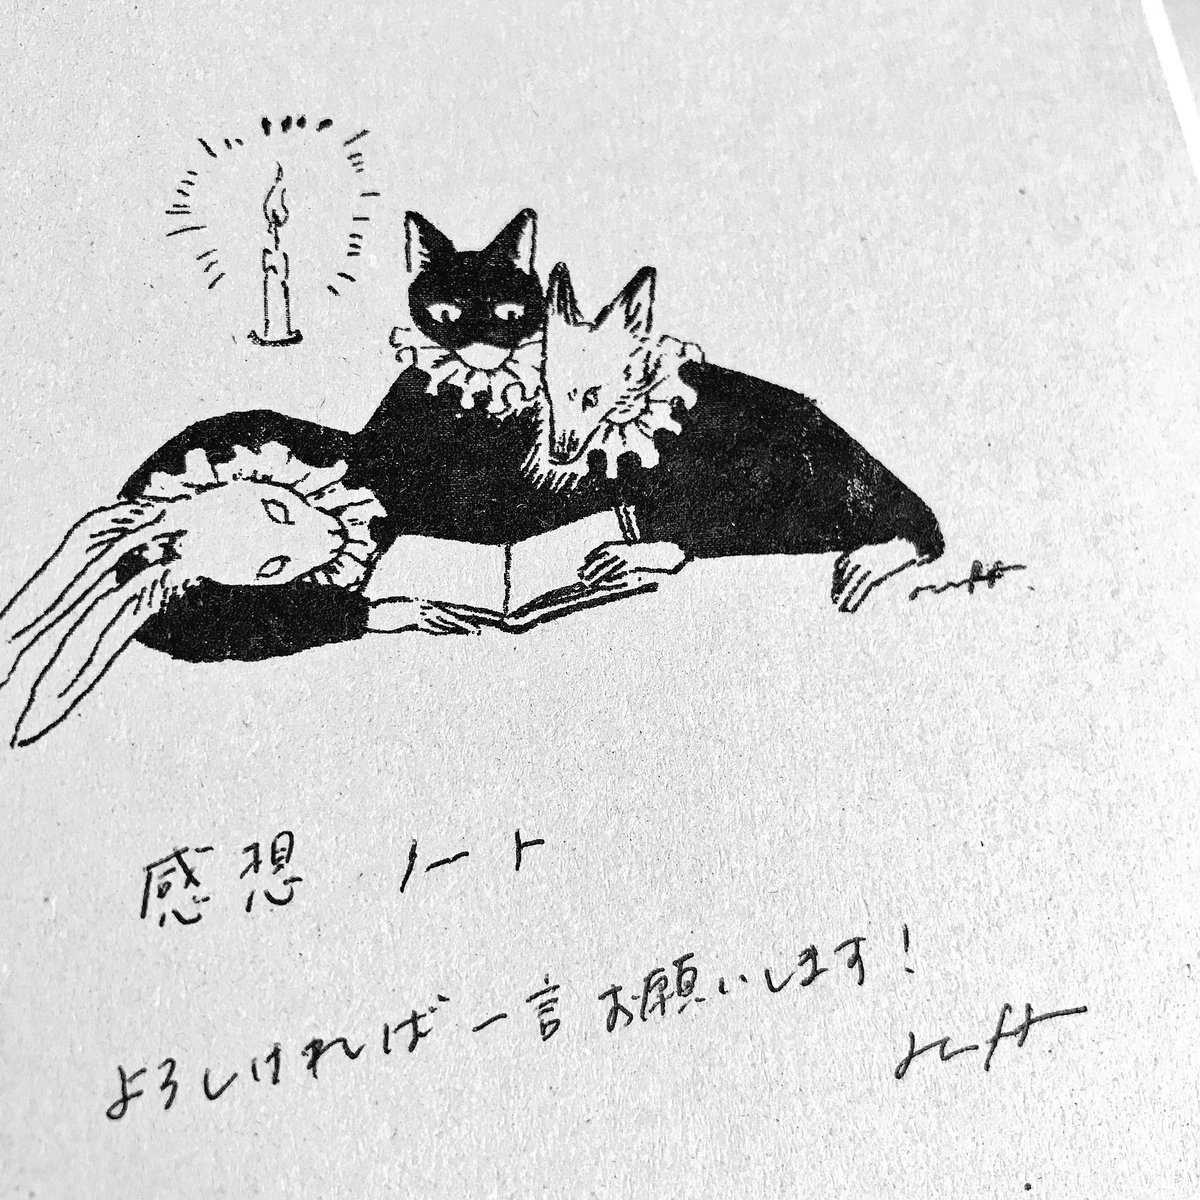 感想 ノート
よろしければ一言お願いします!